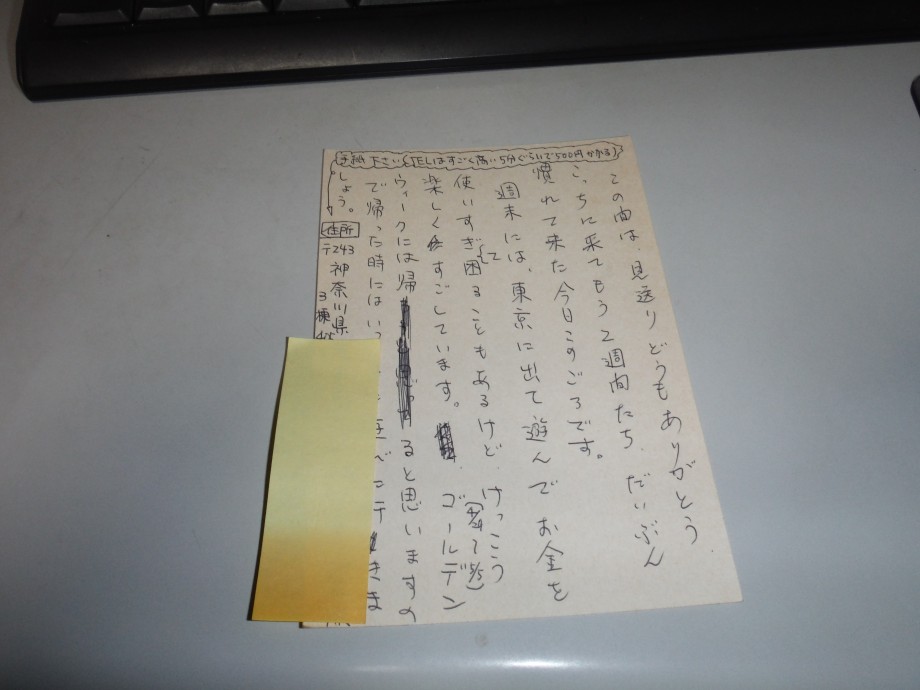 この間は、見送りどうもありがとう
こっちに来てもう2週間たち、だいぶん
慣れて来た今日このごろです。
週末には、東京に出て遊んでお金を
使いすぎて困ることもあるけど けっこう
楽しくすごしています。 ゴールデン
ウィークには帰ると思いますの
で帰った時にはいっ きま
しょう。
手紙下さい(TELはすごく高い5分ぐらいで500円かかる)
住所
〒243
神奈川県
3棟